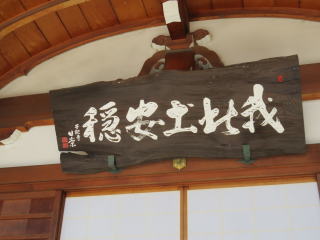 我此土安穏